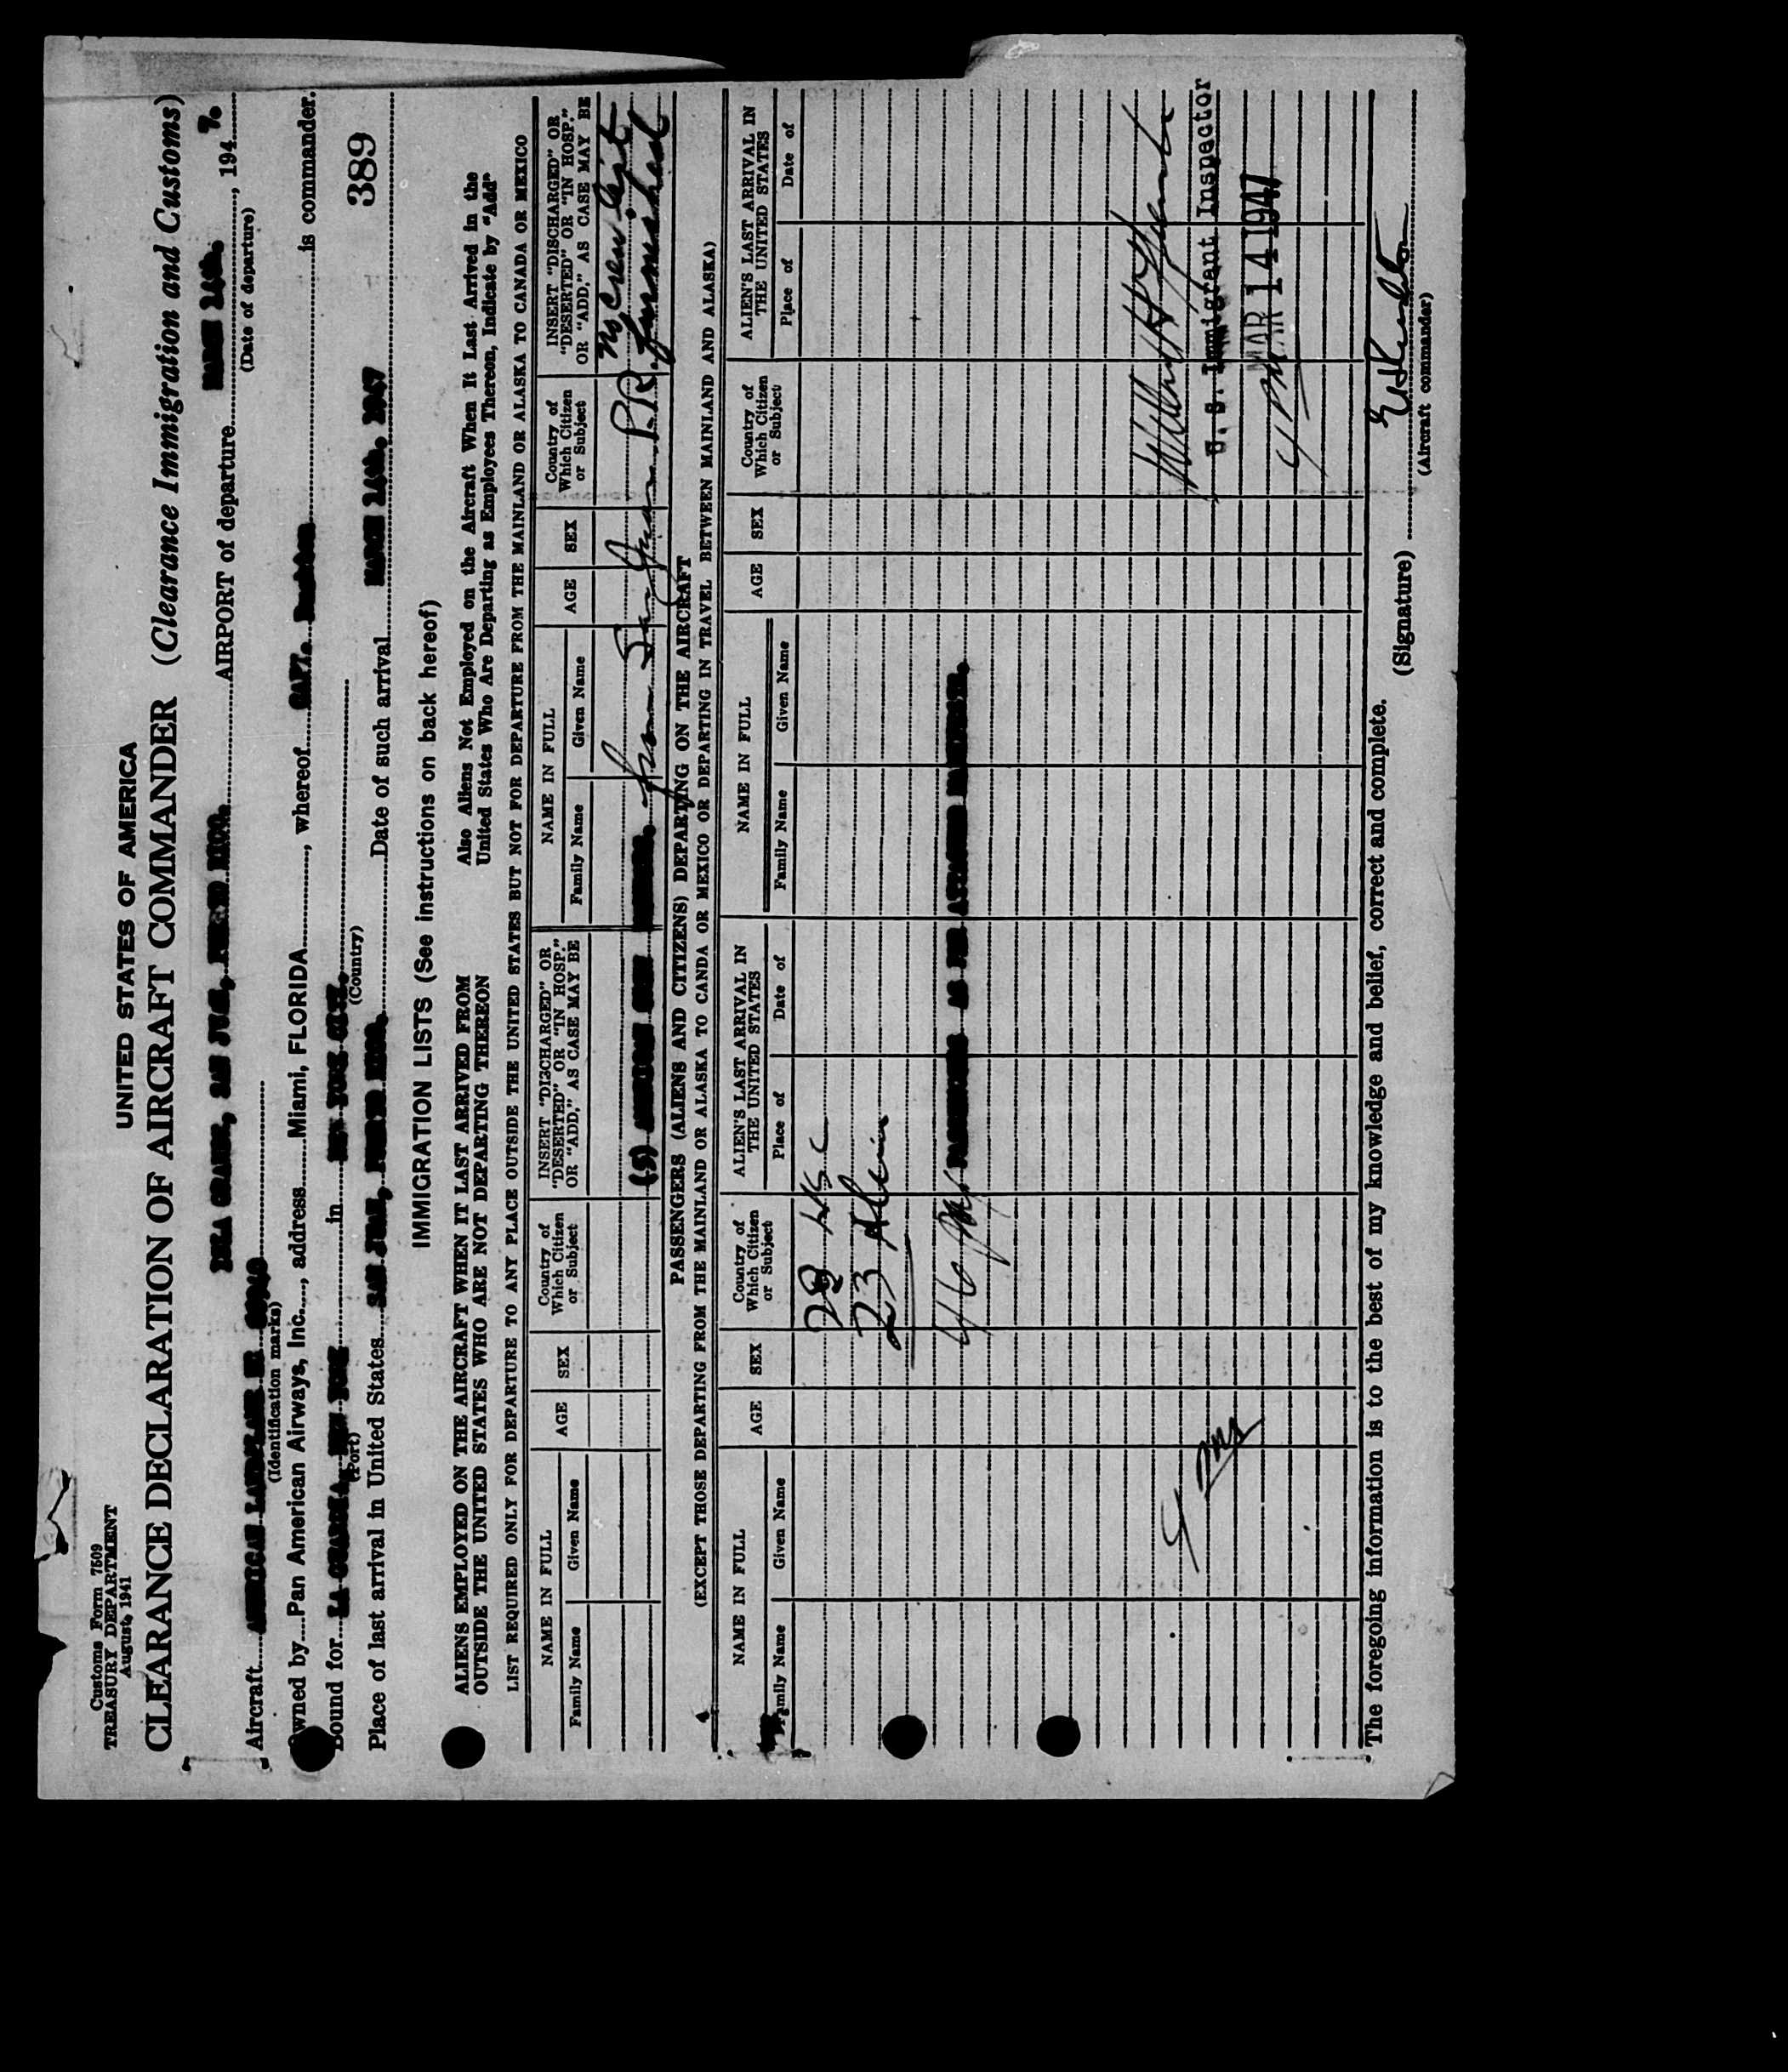 Customs Form 7509
TREASURY DEPARTMENT
August, 1941
UNITED STATES OF AMERICA
CLEARANCE DECLARATION OF AIRCRAFT COMMANDER (Clearance Immigration and Customs)
ISLA GRANDE, SAN JUAN, PUERTO RICO. AIRPORT of departure MARCH 14th. , 194 7.
(Date of departure)
Aircraft AMERICAN LANDPLANE NC
(Identification marks)
Owned by Pan American Airways, Inc. , address Miami, FLORIDA , whereof CAPT. is commander.
Bound for LA GUARDIA, NEW YORK in NEW YORK CITY.
(Port) (Country)
389
Place of last arrival in United States SAN JUAN, PUERTO RICO. Date of such arrival MARCH 14th. 1947
IMMIGRATION LISTS (See instructions on back hereof)
ALIENS EMPLOYED ON THE AIRCRAFT WHEN IT LAST ARRIVED FROM
OUTSIDE THE UNITED STATES WHO ARE NOT DEPARTING THEREON
Also Aliens Not Employed on the Aircraft When It Last Arrived in the
United States Who Are Departing as Employees Thereon, Indicate by "Add"
LIST REQUIRED ONLY FOR DEPARTURE TO ANY PLACE OUTSIDE THE UNITED STATES BUT NOT FOR DEPARTURE FROM THE MAINLAND OR ALASKA TO CANADA OR MEXICO
NAME IN FULL
Family Name Given Name
AGE SEX
Country of Which Citizen or Subject
INSERT "DISCHARGED" OR "DESERTED" OR "IN HOSP." OR "ADD," AS CASE MAY BE
NAME IN FULL
Family Name Given Name
AGE SEX
Country of Which Citizen or Subject
INSERT "DISCHARGED" OR "DESERTED" OR "IN HOSP." OR "ADD," AS CASE MAY BE
No Crew list
(5) AMERICAN CREW MEMBERS. from San Juan P.R. furnished
PASSENGERS (ALIENS AND CITIZENS) DEPARTING ON THE AIRCRAFT
(EXCEPT THOSE DEPARTING FROM THE MAINLAND OR ALASKA TO CANDA OR MEXICO OR DEPARTING IN TRAVEL BETWEEN MAINLAND AND ALASKA)
NAME IN FULL
Family Name Given Name
AGE SEX
Country of Which Citizen or Subject
ALIEN'S LAST ARRIVAL IN THE UNITED STATES
Place of Date of
NAME IN FULL
Family Name Given Name
AGE SEX
Country of Which Citizen or Subject
ALIEN'S LAST ARRIVAL IN THE UNITED STATES
Place of Date of
23
46 PASSENGERS AS PER ATTACHED MANIFEST.
U. S. Immigrant Inspector
MAR 14 1947
The foregoing information is to the best of my knowledge and belief, correct and complete.
(Signature)
(Aircraft commander)